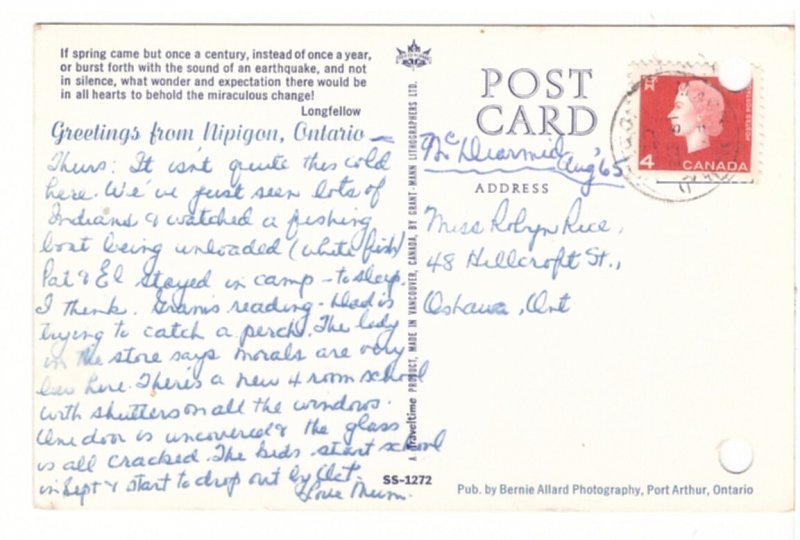 If spring came but once a century, instead of once a year,
or burst forth with the sound of an earthquake, and not
in silence, what wonder and expectation there would be
in all hearts to behold the miraculous change!
Longfellow
Greetings from Nipigon, Ontario
Thurs: It isn't quite this cold
here. We've just seen lots of
Indians & watched a fishing
boat being unloaded (white fish)
Pat & El stayed in camp - to sleep,
I think. Gram's reading - Dad is
trying to catch a perch. The lady
in the store says morals are very
low here. There's a new 4 room school
with shutters on all the windows.
One door is uncovered & the glass
is all cracked. The kids start school
in Sept & start to drop out by Oct.
Love Mum.
SS-1272
A Traveltime PRODUCT, MADE IN VANCOUVER, CANADA, BY GRANT-MANN LITHOGRAPHERS LTD.
POST
CARD
McDiarmid Aug '65
ADDRESS
Miss Robyn Rice,
48 Hillcroft St.,
Oshawa, Ont
4 CANADA
POSTES POSTAGE
Pub. by Bernie Allard Photography, Port Arthur, Ontario